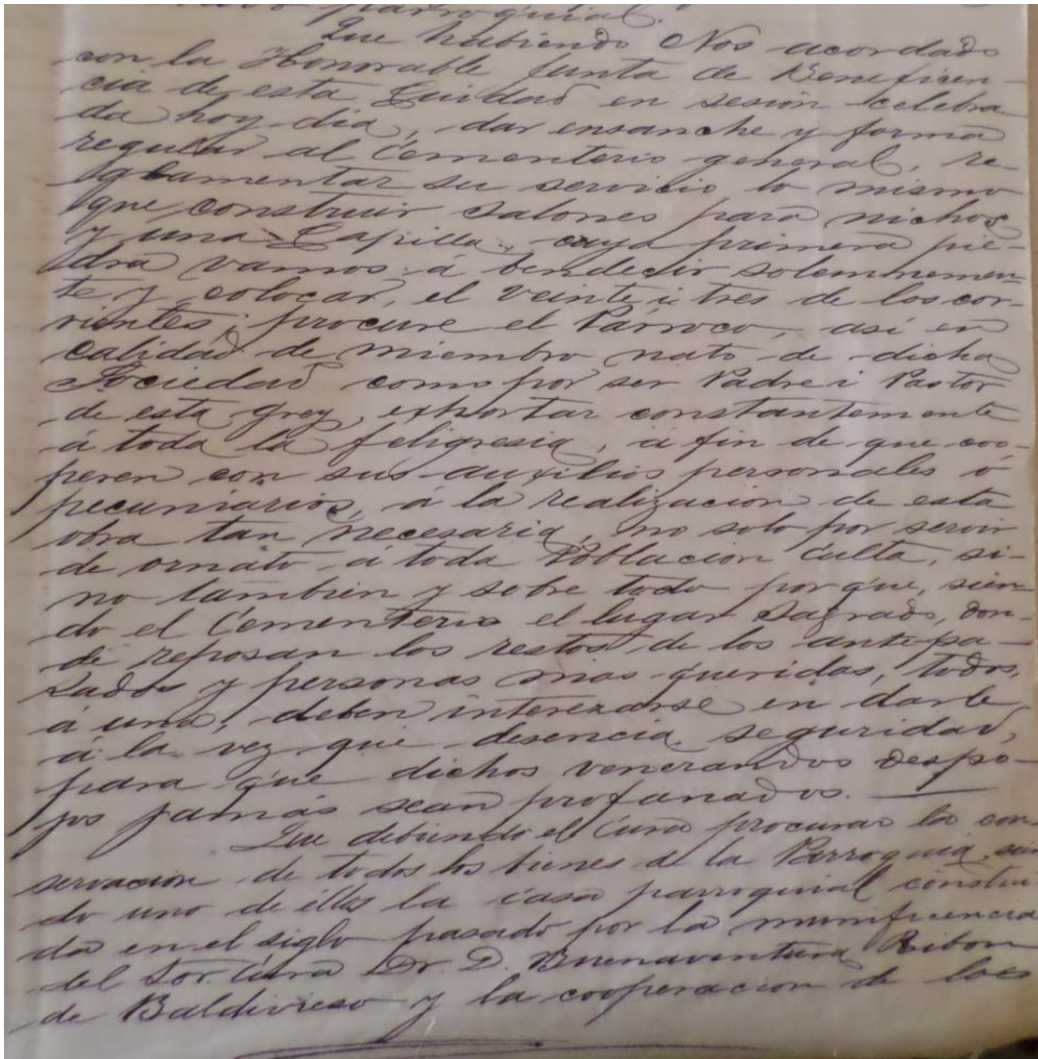 parroquial."
Que habiendo Nos acordado
con la Honorable Junta de Beneficen-
cia de esta Ciudad en sesion celebra
da hoy dia, dar ensanche y forma
regular al Cementerio general, re-
glamentar su servicio lo mismo
que construir salones para nichos
y una Capilla, cuya primera pie-
dra vamos á bendecir solemnemen-
te y colocar, el veinte i tres de los cor-
rientes; procure el Párroco, asi en
calidad de miembro nato de dicha
Sociedad como por ser Padre i Pastor
de esta grey, exhortar constantemente
á toda la feligresia, á fin de que coo-
peren con sus auxilios personales ó
pecuniarios, á la realizacion de esta
obra tan necesaria, no solo por servir
de ornato á toda Poblacion culta, si-
no tambien y sobre todo porque, sien-
do el Cementerio el lugar sagrado, don-
de reposan los restos de los antepa-
zados y personas mas queridas, todos,
á una, deben interezarse en darle,
á la vez que desencia, seguridad,
para que dichos venerandos despo-
jos jamás sean profanados.
Que debiendo el Cura procurar la con-
servacion de todos los bienes de la Parroquia, sien
do uno de éllos la casa parroquial construi
da en el siglo pasado por la munificencia
del Sor. Cura Dr. D. Buenaventura Ribon
de Baldivieso y la cooperacion de los